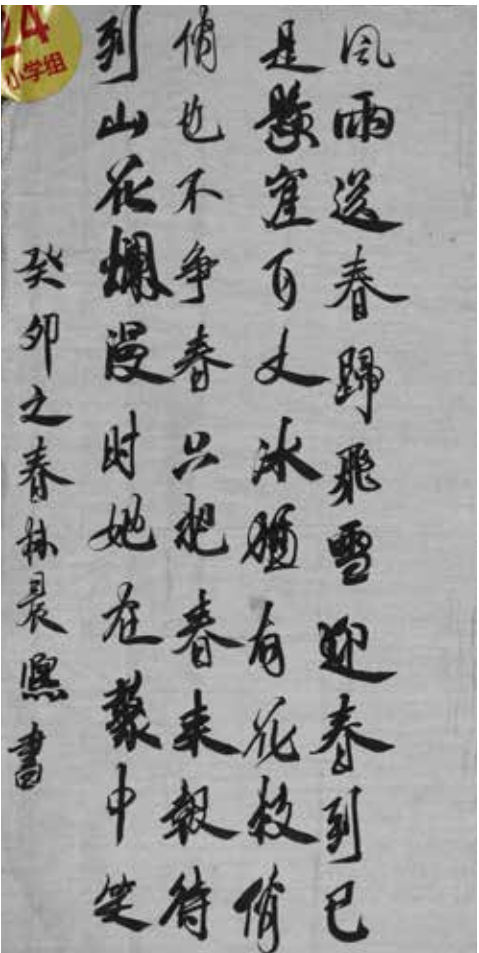 風雨送春歸飛雪迎春到已
是懸崖百丈冰猶有花枝俏
俏也不争春只把春来報待
到山花爛漫时她在叢中笑
癸卯之春林晨熙書
24
小学组